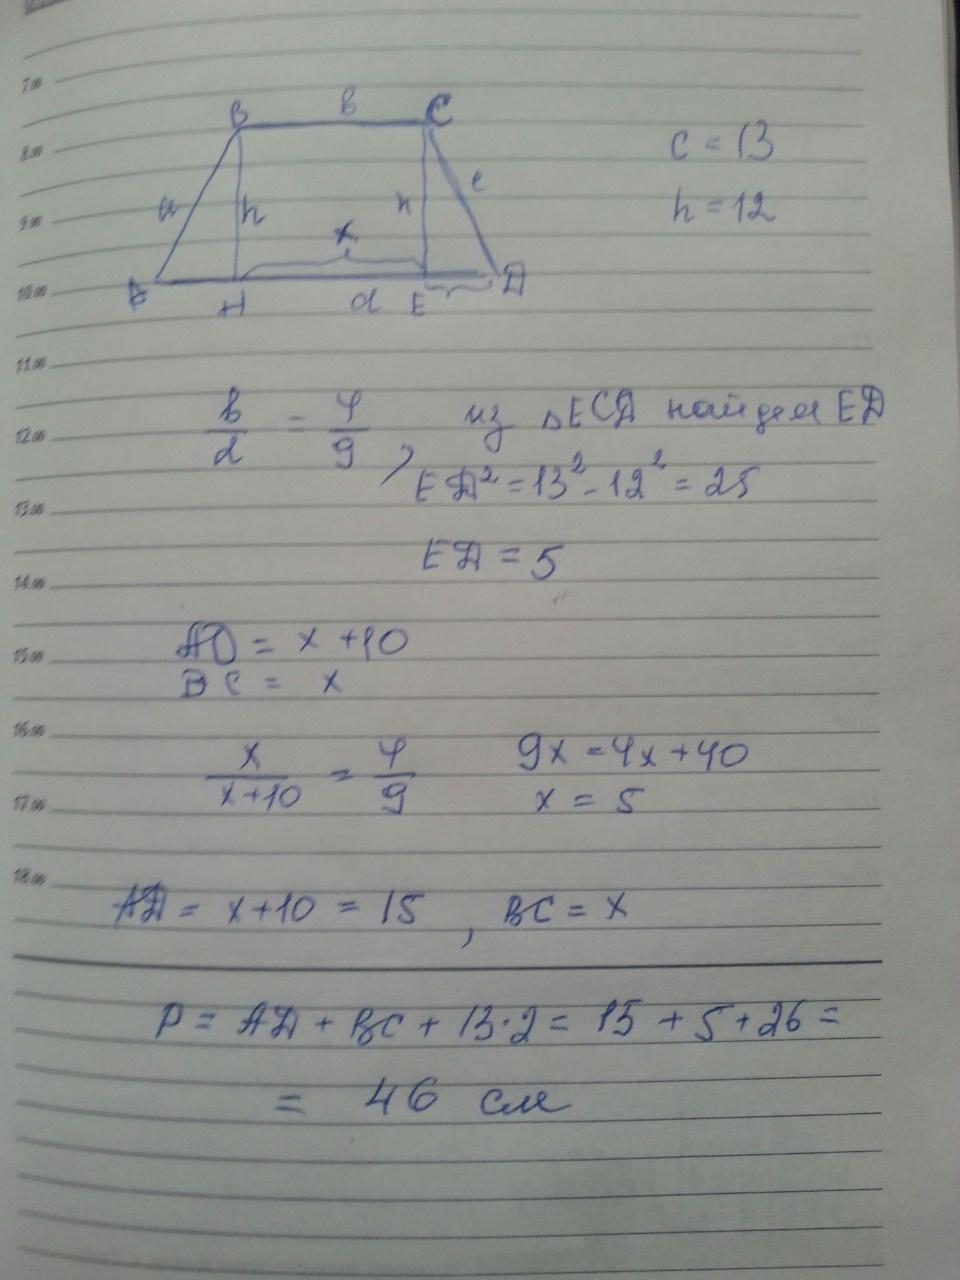 7.00
8.00
9.00
10.00
11.00
12.00
13.00
14.00
15.00
16.00
17.00
18.00
B в C
a h h c
x
A H d E D
c = 13
h = 12
в/d = 4/9 , из ΔECD найдем ED
ED² = 13² - 12² = 25
ED = 5
AD = x + 10
BC = x
x/(x+10) = 4/9 9x = 4x + 40
x = 5
AD = x + 10 = 15 , BC = x
P = AD + BC + 13·2 = 15 + 5 + 26 =
= 46 см